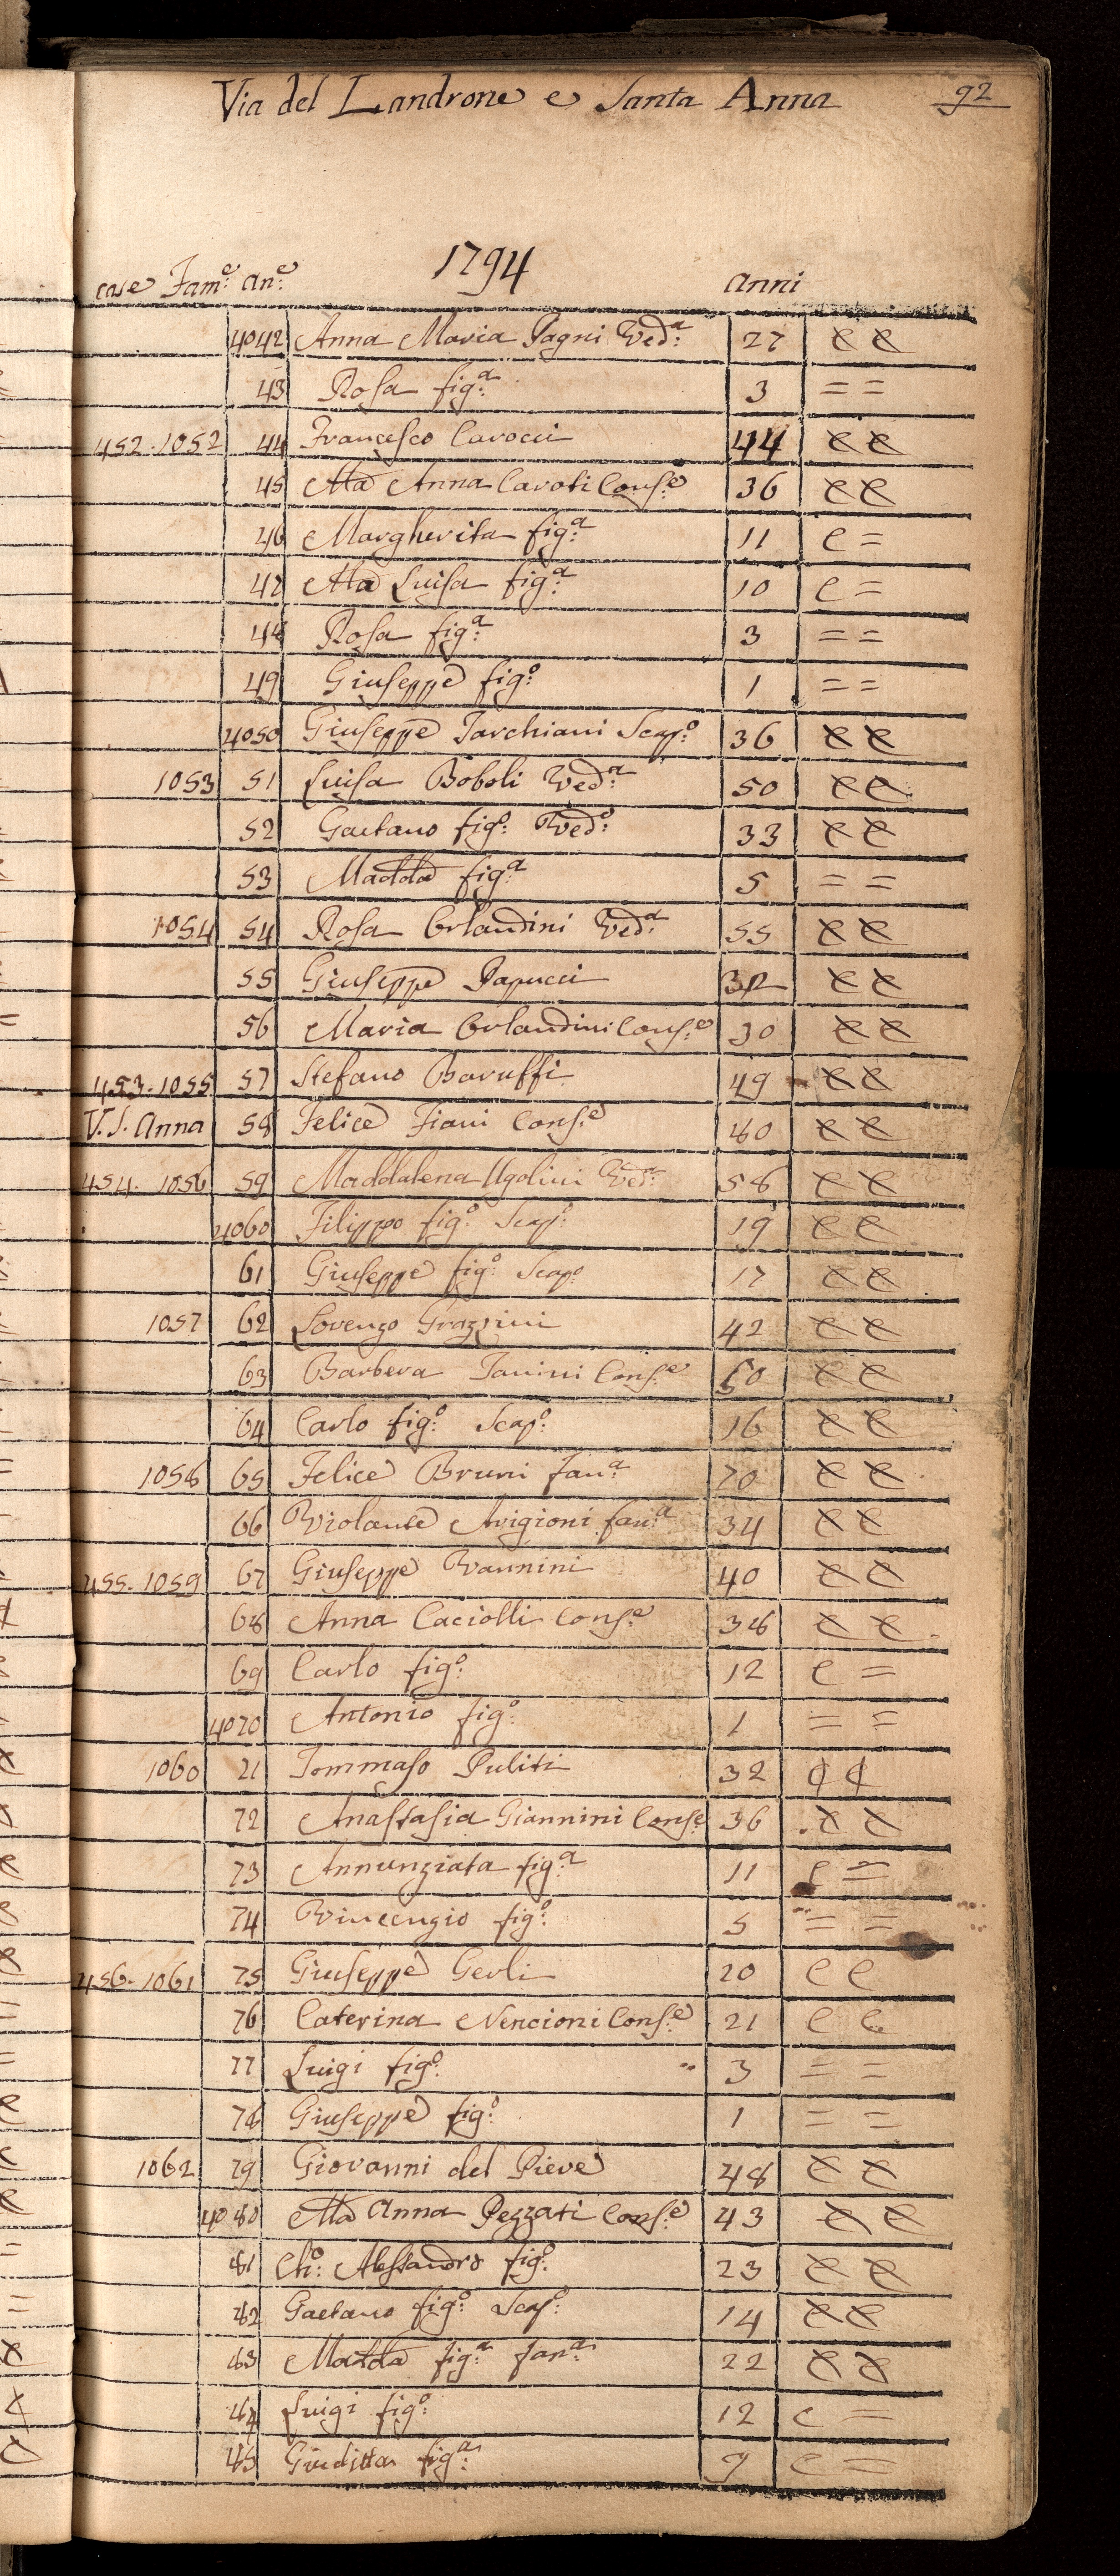 Via del Landrone e Santa Anna 92
1794
case Fam.e an.e anni
4042 Anna Maria Pagni Ved.a 27 e e
43 Rosa fig.a 3 = =
452. 1052 44 Francesco Carocci 44 e e
45 Ma Anna Caroti Cons.e 36 e e
46 Margherita fig.a 11 e =
47 Ma Luisa fig.a 10 e =
48 Rosa fig.a 3 = =
49 Giuseppe fig.o 1 = =
4050 Giuseppe Tarchiani Scap.o 36 e e
1053 51 Luisa Boboli Ved.a 50 e e
52 Gaetano fig.o Ved.o 33 e e
53 Madda fig.a 5 = =
1054 54 Rosa Orlandini Ved.a 55 e e
55 Giuseppe Papucci 32 e e
56 Maria Orlandini Cons.e 30 e e
453. 1055 57 Stefano Baruffi 49 e e
V. S. Anna 58 Felice Fiani Cons.e 80 e e
454. 1056 59 Maddalena Ugolini Ved.a 58 e e
4060 Filippo fig.o Scap.o 19 e e
61 Giuseppe fig.o Scap.o 17 e e
1057 62 Lorenzo Grazzini 42 e e
63 Barbera Tanini Cons.e 50 e e
64 Carlo fig.o Scap.o 16 e e
1058 65 Felice Bruni fan.a 70 e e
66 Violante Arigioni fan.a 34 e e
455. 1059 67 Giuseppe Vannini 40 e e
68 Anna Caciolli Cons.e 38 e e
69 Carlo fig.o 12 e =
4070 Antonio fig.o 1 = =
1060 71 Tommaso Puliti 32 ¢ ¢
72 Anastasia Giannini Cons.e 36 e e
73 Annunziata fig.a 11 e =
74 Vincenzio fig.o 5 = =
456. 1061 75 Giuseppe Gerli 20 e e
76 Caterina Nencioni Cons.e 21 e e
77 Luigi fig.o 3 = =
78 Giuseppe fig.o 1 = =
1062 79 Giovanni del Pieve 48 e e
4080 Ma Anna Pezzati Cons.e 43 e e
81 Ch.o Alessandro fig.o 23 e e
82 Gaetano fig.o Scap.o 14 e e
83 Madda fig.a fan.a 22 e e
84 Luigi fig.o 12 e =
85 Giuditta fig.a 9 e =